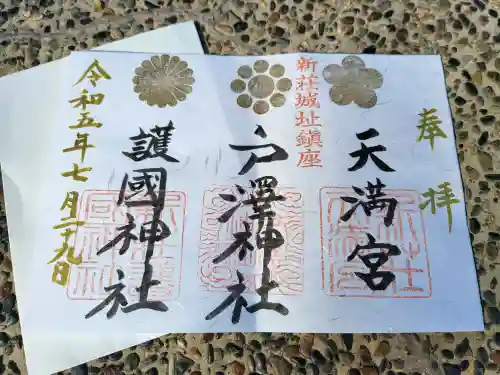 奉拝
天満宮
新荘城址鎮座
戸澤神社
護國神社
令和五年七月二十九日